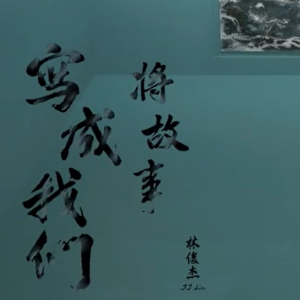 將故事
寫成我們
林俊杰
JJ Lin